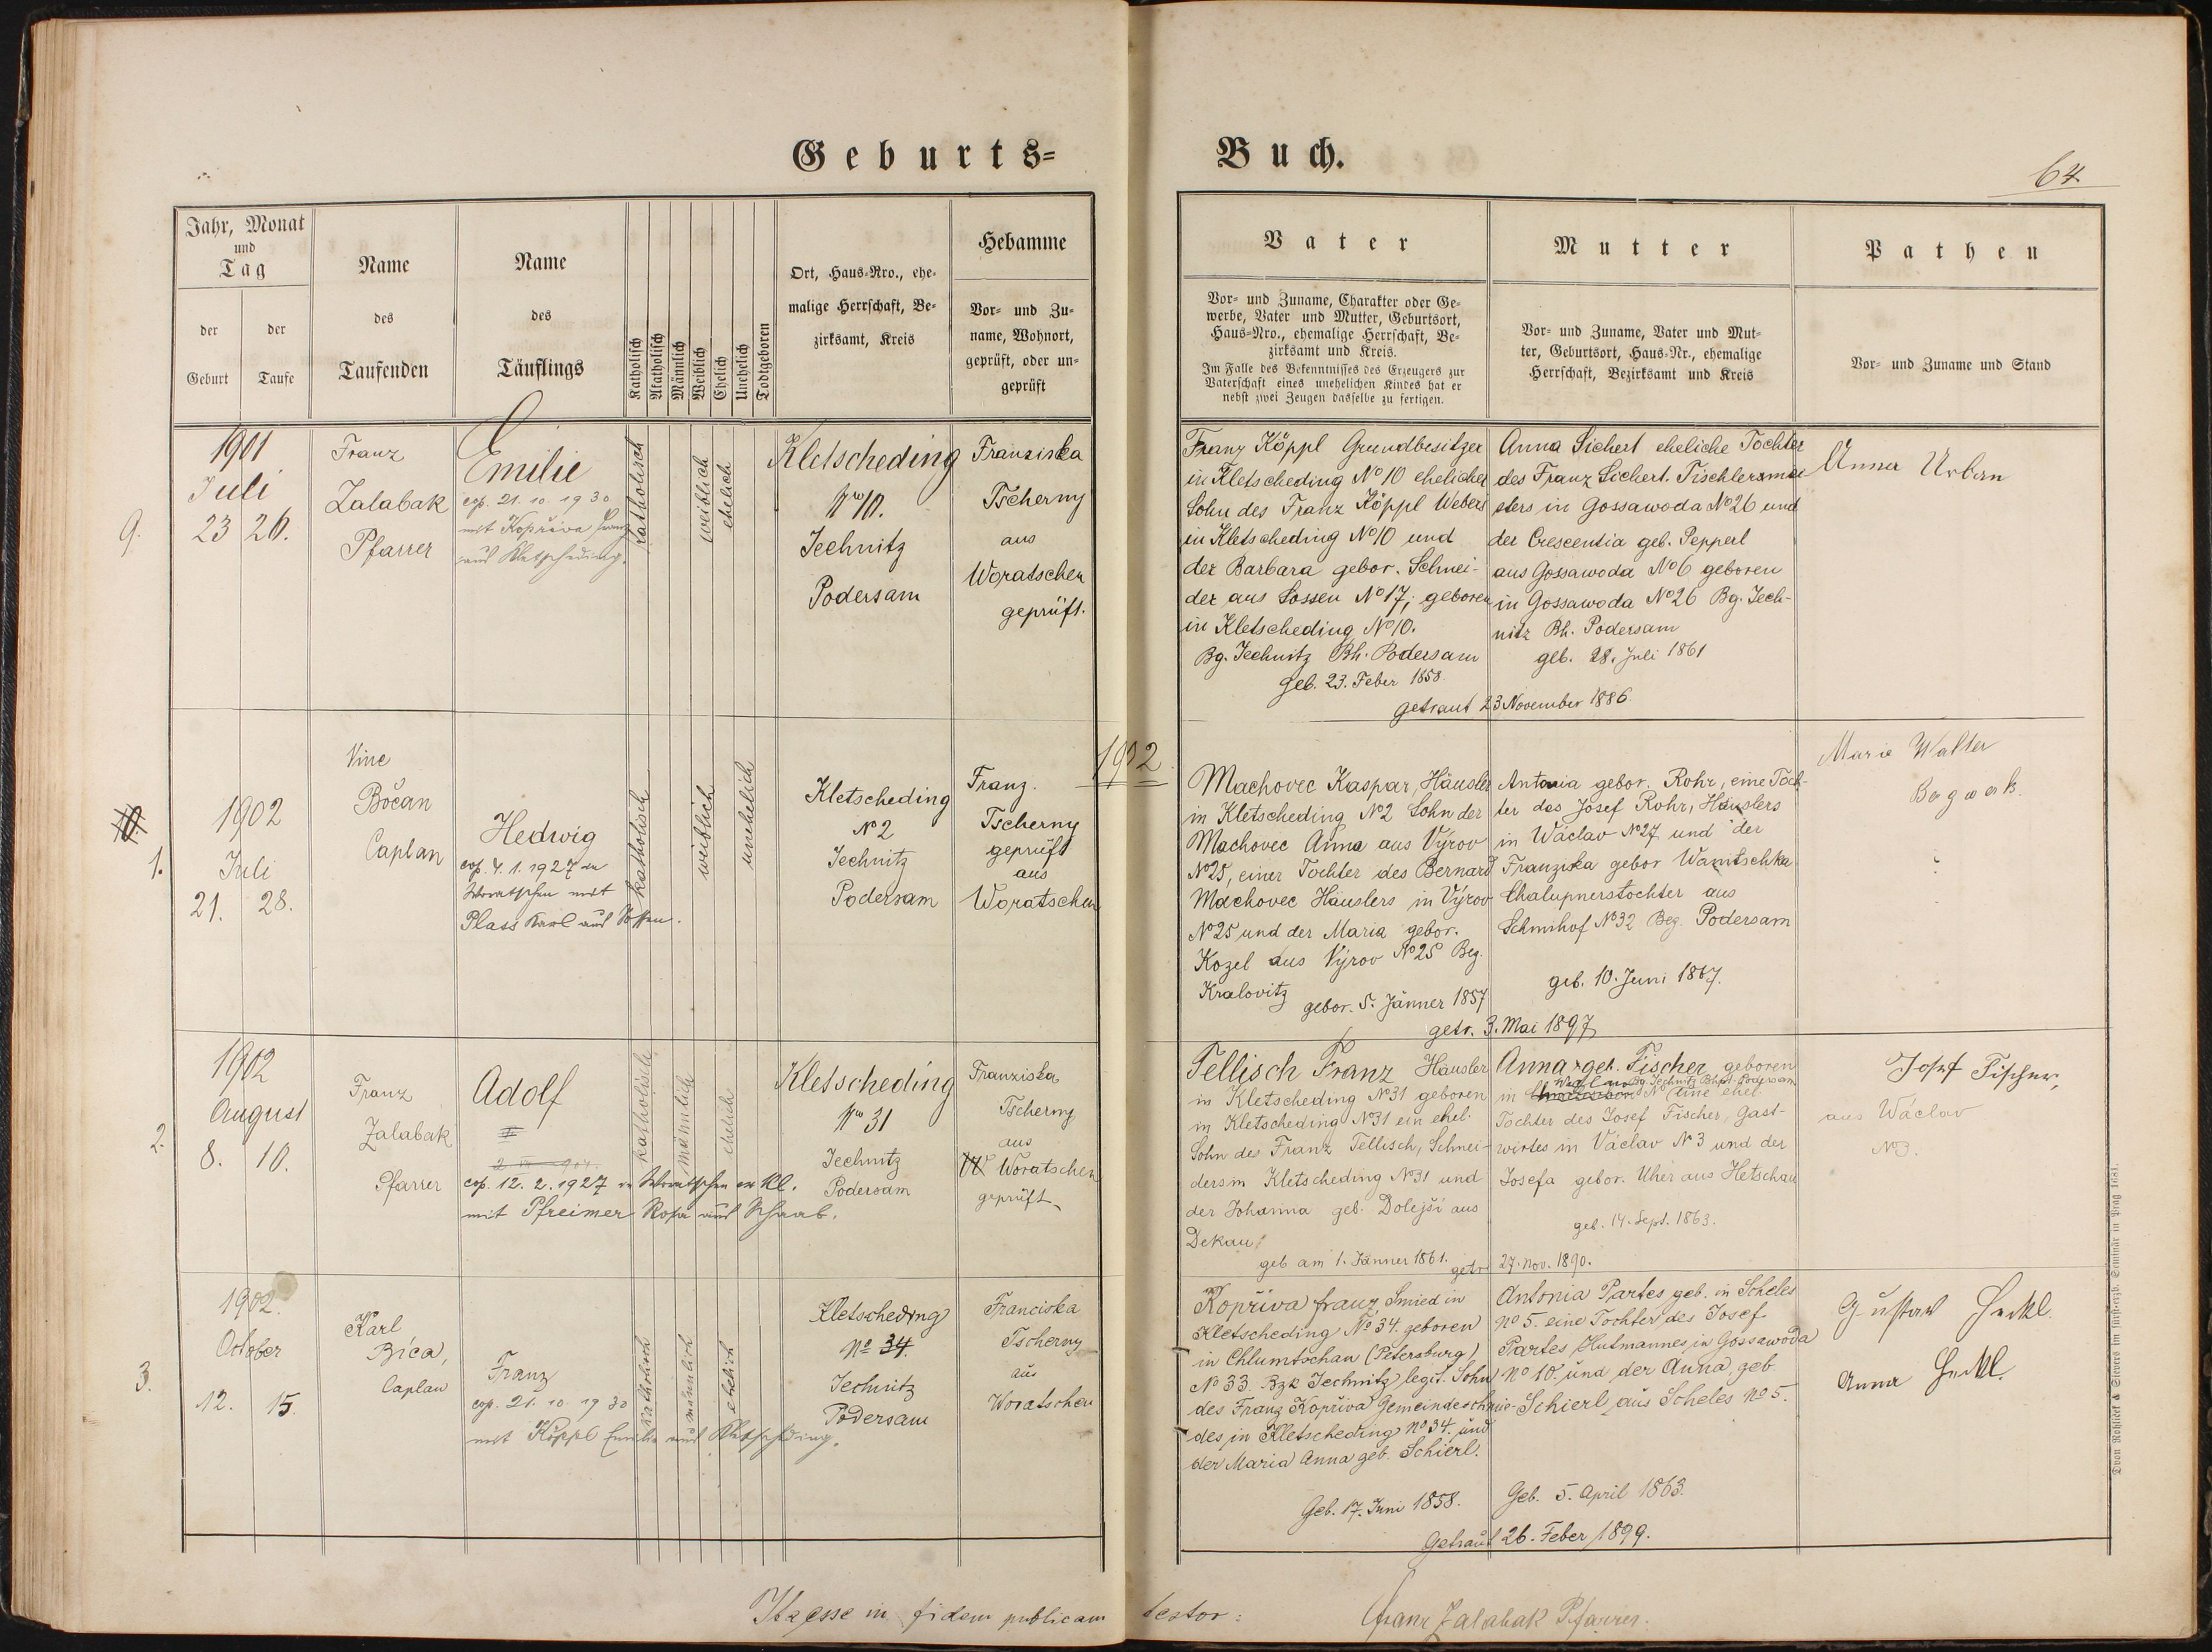 Geburts-
Buch.
64
Jahr, Monat
und
Tag
der
Geburt
der
Taufe
Name
des
Taufenden
Name
des
Täuflings
Katholisch
Akatholisch
Männlich
Weiblich
Ehelich
Unehelich
Todtgeboren
Ort, Haus-Nro., ehe-
malige Herrschaft, Be-
zirksamt, Kreis
Hebamme
Vor- und Zu-
name, Wohnort,
geprüft, oder un-
geprüft
Vater
Vor- und Zuname, Charakter oder Ge-
werbe, Vater und Mutter, Geburtsort,
Haus-Nro., ehemalige Herrschaft, Be-
zirksamt und Kreis.
Im Falle des Bekenntnisses des Erzeugers zur
Vaterschaft eines unehelichen Kindes hat er
nebst zwei Zeugen dasselbe zu fertigen.
Mutter
Vor- und Zuname, Vater und Mut-
ter, Geburtsort, Haus-Nr., ehemalige
Herrschaft, Bezirksamt und Kreis
Pathen
Vor- und Zuname und Stand
9.
1901
Juli
23 26.
Franz
Zalabak
Pfarrer
Emilie
cop. 21. 10. 1930
mit Kopřiva Franz
aus Kletscheding.
katholisch
weiblich
ehelich
Kletscheding
Nro 10.
Jechnitz
Podersam
Franziska
Tscherny
aus
Woratschen
geprüft.
Franz Köppl Grundbesitzer
in Kletscheding No 10 ehelicher
Sohn des Franz Köppl Webers
in Kletscheding No 10 und
der Barbara gebor. Schnei-
der aus Sossen No 17, geboren
in Kletscheding No 10.
Bg. Jechnitz Bh. Podersam
geb. 23. Feber 1858.
Anna Sichert eheliche Tochter
des Franz Sichert Tischlermei-
sters in Gossawoda No 26 und
der Crescentia geb. Pepperl
aus Gossawoda No 6 geboren
in Gossawoda No 26 Bg. Jech-
nitz Bh. Podersam
geb. 28. Juli 1861
getraut 23 November 1886.
Anna Urban
1902
10.
1.
1902
Juli
21. 28.
Vinc
Bočan
Caplan
Hedwig
cop. 4. 1. 1927 in
Woratschen mit
Plass Karl aus Sossen.
katholisch
weiblich
unehelich
Kletscheding
No 2
Jechnitz
Podersam
Franz.
Tscherny
geprüft
aus
Woratschen
Machovec Kaspar, Häusler
in Kletscheding No 2 Sohn der
Machovec Anna aus Výrov
No 25, einer Tochter des Bernard
Machovec Häuslers in Výrov
No 25 und der Maria gebor.
Kozel aus Výrov No 25 Beg.
Kralovitz gebor. 5. Jänner 1857
Antonia gebor. Rohr, eine Toch-
ter des Josef Rohr, Häuslers
in Wáclav No 27 und der
Franziska gebor Wanitschka
Chalupnerstochter aus
Schmihof No 32 Beg. Podersam
geb. 10. Juni 1867.
getr. 3. Mai 1897
Marie Walter
2.
1902
August
8. 10.
Franz
Zalabak
Pfarrer
Adolf
cop. 12. 2. 1927 in Woratschen ex Kl.
mit Pfreimer Rosa aus Schaab.
katholisch
männlich
ehelich
Kletscheding
Nro 31
Jechnitz
Podersam
Franziska
Tscherny
aus
Woratschen
geprüft
Tellisch Franz Häusler
in Kletscheding No 31 geboren
in Kletscheding No 31 ein ehel.
Sohn des Franz Tellisch, Schnei-
ders in Kletscheding No 31 und
der Johanna geb. Dolejší aus
Dekau
geb am 1. Jänner 1861.
Anna geb. Fischer geboren
in No 1 eine ehel.
Tochter des Josef Fischer, Gast-
wirtes in Václav No 3 und der
Josefa gebor. Uher aus Hetschau
geb. 14. Sept. 1863.
getr. 27. Nov. 1890.
Josef Fischer,
aus Wáclav
No 3.
3.
1902.
October
12. 15.
Karl
Bíca,
Caplan
Franz
cop. 21. 10. 1930
mit Köppl Emilie aus Kletscheding.
katholisch
männlich
ehelich
Kletscheding
No 34.
Jechnitz
Podersam
Franciska
Tscherny
aus
Woratschen
Kopřiva Franz, Smied in
Kletscheding No 34. geboren
in Chlumtschan (Petersburg)
No 33 Bzk Jechnitz, legit. Sohn
des Franz Kopřiva Gemeindeschmie-
des in Kletscheding No 34. und
der Maria Anna geb. Schierl.
Geb. 17. Juni 1858.
Antonia Partes geb. in Scheles
No 5. eine Tochter des Josef
Partes Hutmannes in Gossawoda
No 10. und der Anna, geb.
Schierl aus Scheles No 5.
Geb. 5. April 1863.
Getraut 26. Feber 1899.
Gustav
Anna
Ita esse in fidem publicam testor:
Franz Zalabak Pfarrer.